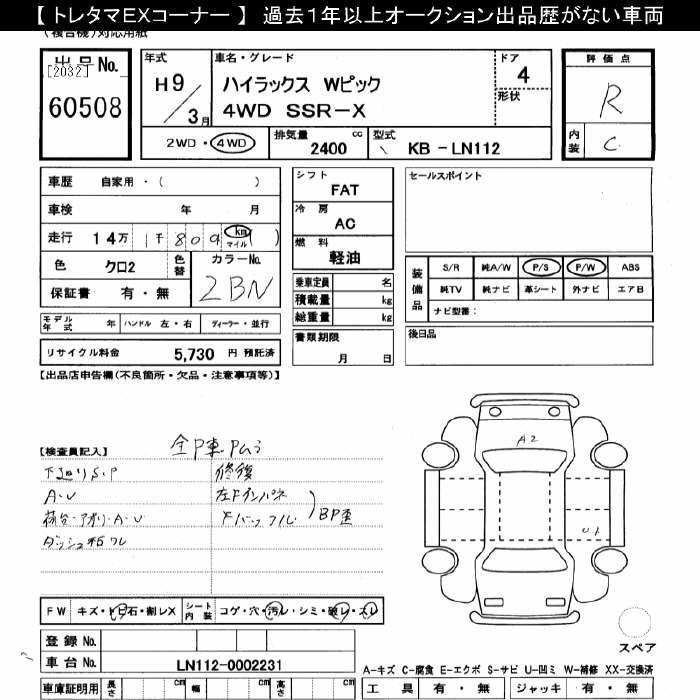 【 トレタマEXコーナー 】 過去1年以上オークション出品歴がない車両
(複合機)対応用紙
出品No.
[2032]
60508
年式
H9/3月
車名・グレード
ハイラックス Wピック
4WD SSR-X
ドア
4
形状
評価点
R
内装
C
2WD・4WD
排気量
2400 cc
型式
KB-LN112
車歴 自家用・( )
車検 年 月
走行 14万 1千 809 km マイル ( )
色 クロ2 色替
カラーNo.
2BN
保証書 有・無
シフト
FAT
冷房
AC
燃料
軽油
セールスポイント
乗車定員 名
積載量 kg
総重量 kg
装備品
S/R 純A/W P/S P/W ABS
純TV 純ナビ 革シート 外ナビ エアB
ナビ型番:
モデル年式 年 ハンドル 左・右 ディーラー・並行
書類期限
月 日
後日品
リサイクル料金 5,730 円 預託済
【出品店申告欄(不良箇所・欠品・注意事項等)】
【検査員記入】
全P車Pムラ
下廻りS.P
修復
A・U
左Fインパネ
荷台・アオリ・A・U
BP歪
A2
U1
FW キズ・飛石・割レX
シート内装 コゲ・穴・汚レ・シミ・破レ・スレ
登録No.
車台No. LN112-0002231
スペア
A-キズ C-腐食 E-エクボ S-サビ U-凹ミ W-補修 XX-交換済
車庫証明用 長さ cm 幅 cm 高さ cm
工具 有・無 ジャッキ 有・無